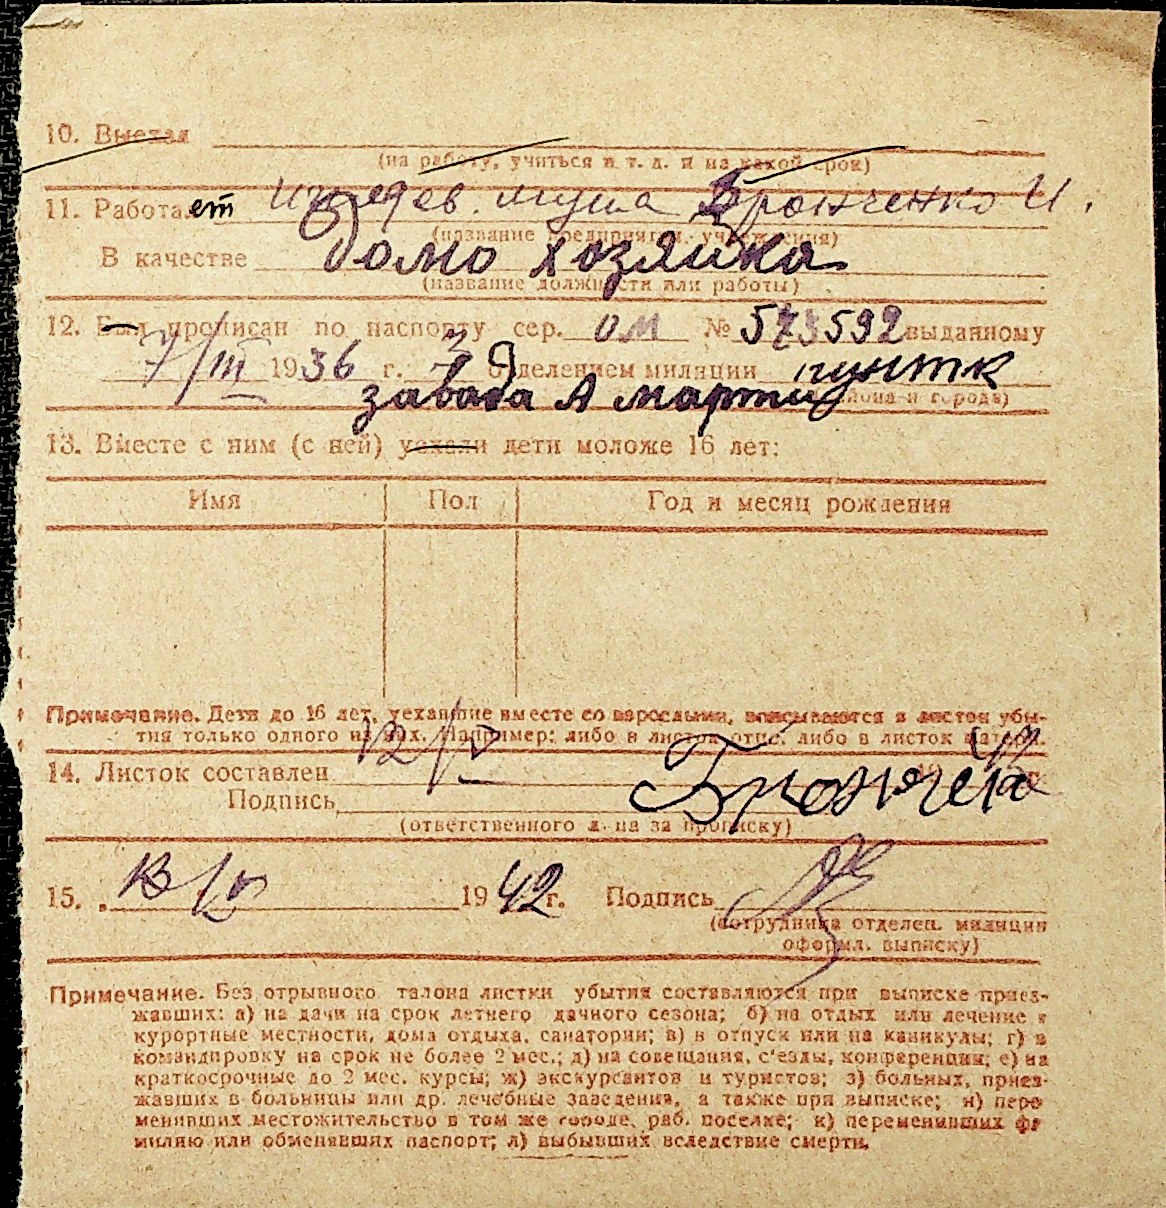 10. Выехал
(на работу, учиться и т. д. и на какой срок)
11. Работает иждев. мужа Бронченко И.
(название предприятия, учреждения)
В качестве домо хозяйка
(название должности или работы)
12. Был прописан по паспорту сер. ОМ № 573592 выданному
7/III 1936 г. 7 отделением милиции пунтк
завода А марти района и города)
13. Вместе с ним (с ней) уехали дети моложе 16 лет:
Имя Пол Год и месяц рождения
Примечание. Дети до 16 лет, уехавшие вместе со взрослыми, вписываются в листок убы-
тия только одного из них. Например: либо в листок отца, либо в листок матери.
14. Листок составлен 13/V 1942 г.
Подпись
(ответственного л-ца за прописку)
15. „ 13/V 1942 г. Подпись
(сотрудника отделен. милиции
оформл. выписку)
Примечание. Без отрывного талона листки убытия составляются при выписке приез-
жавших: а) на дачи на срок летнего дачного сезона; б) на отдых или лечение в
курортные местности, дома отдыха, санатории; в) в отпуск или на каникулы; г) в
командировку на срок не более 2 мес.; д) на совещания, с'езды, конференции; е) на
краткосрочные до 2 мес. курсы; ж) экскурсантов и туристов; з) больных, приез-
жавших в больницы или др. лечебные заведения, а также при выписке; и) пере
менивших местожительство в том же городе, раб. поселке; к) переменивших фа
милию или обменявших паспорт; л) выбывших вследствие смерти.